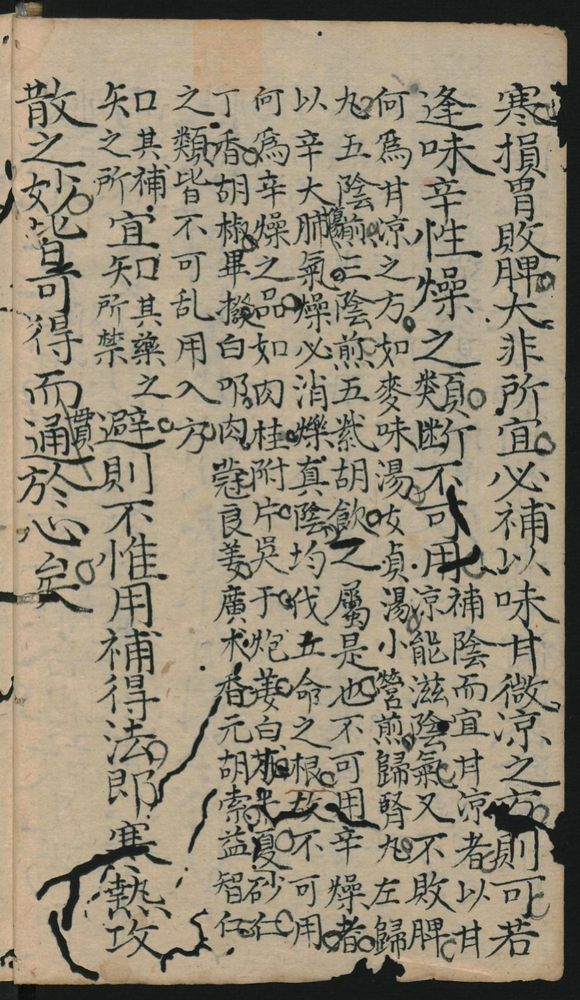 寒損胃敗脾大非所宜必補以味甘微凉之方則可若
逢味辛性燥之類断不可用補陰而宜甘凉者以甘
凉能滋陰氣又不敗脾
何爲甘凉之方如麥味湯女貞湯小營煎歸腎丸左歸
丸五陰煎三陰煎五紫胡飲之屬是也不可用辛燥者
以辛大肺氣燥必消爍真陰均伐五命之根故不可用
何爲辛燥之品如肉桂附片吳于炮姜白朮半夏砂仁
丁香胡椒畢撥白叩肉蔻良姜廣木香元胡索益智仁
之類皆不可乱用入方
口其補
矢之所
宜
口其藥之
矢所禁
避則不惟用補得法即寒熱攻
散之妙皆可得而通貫於心矣